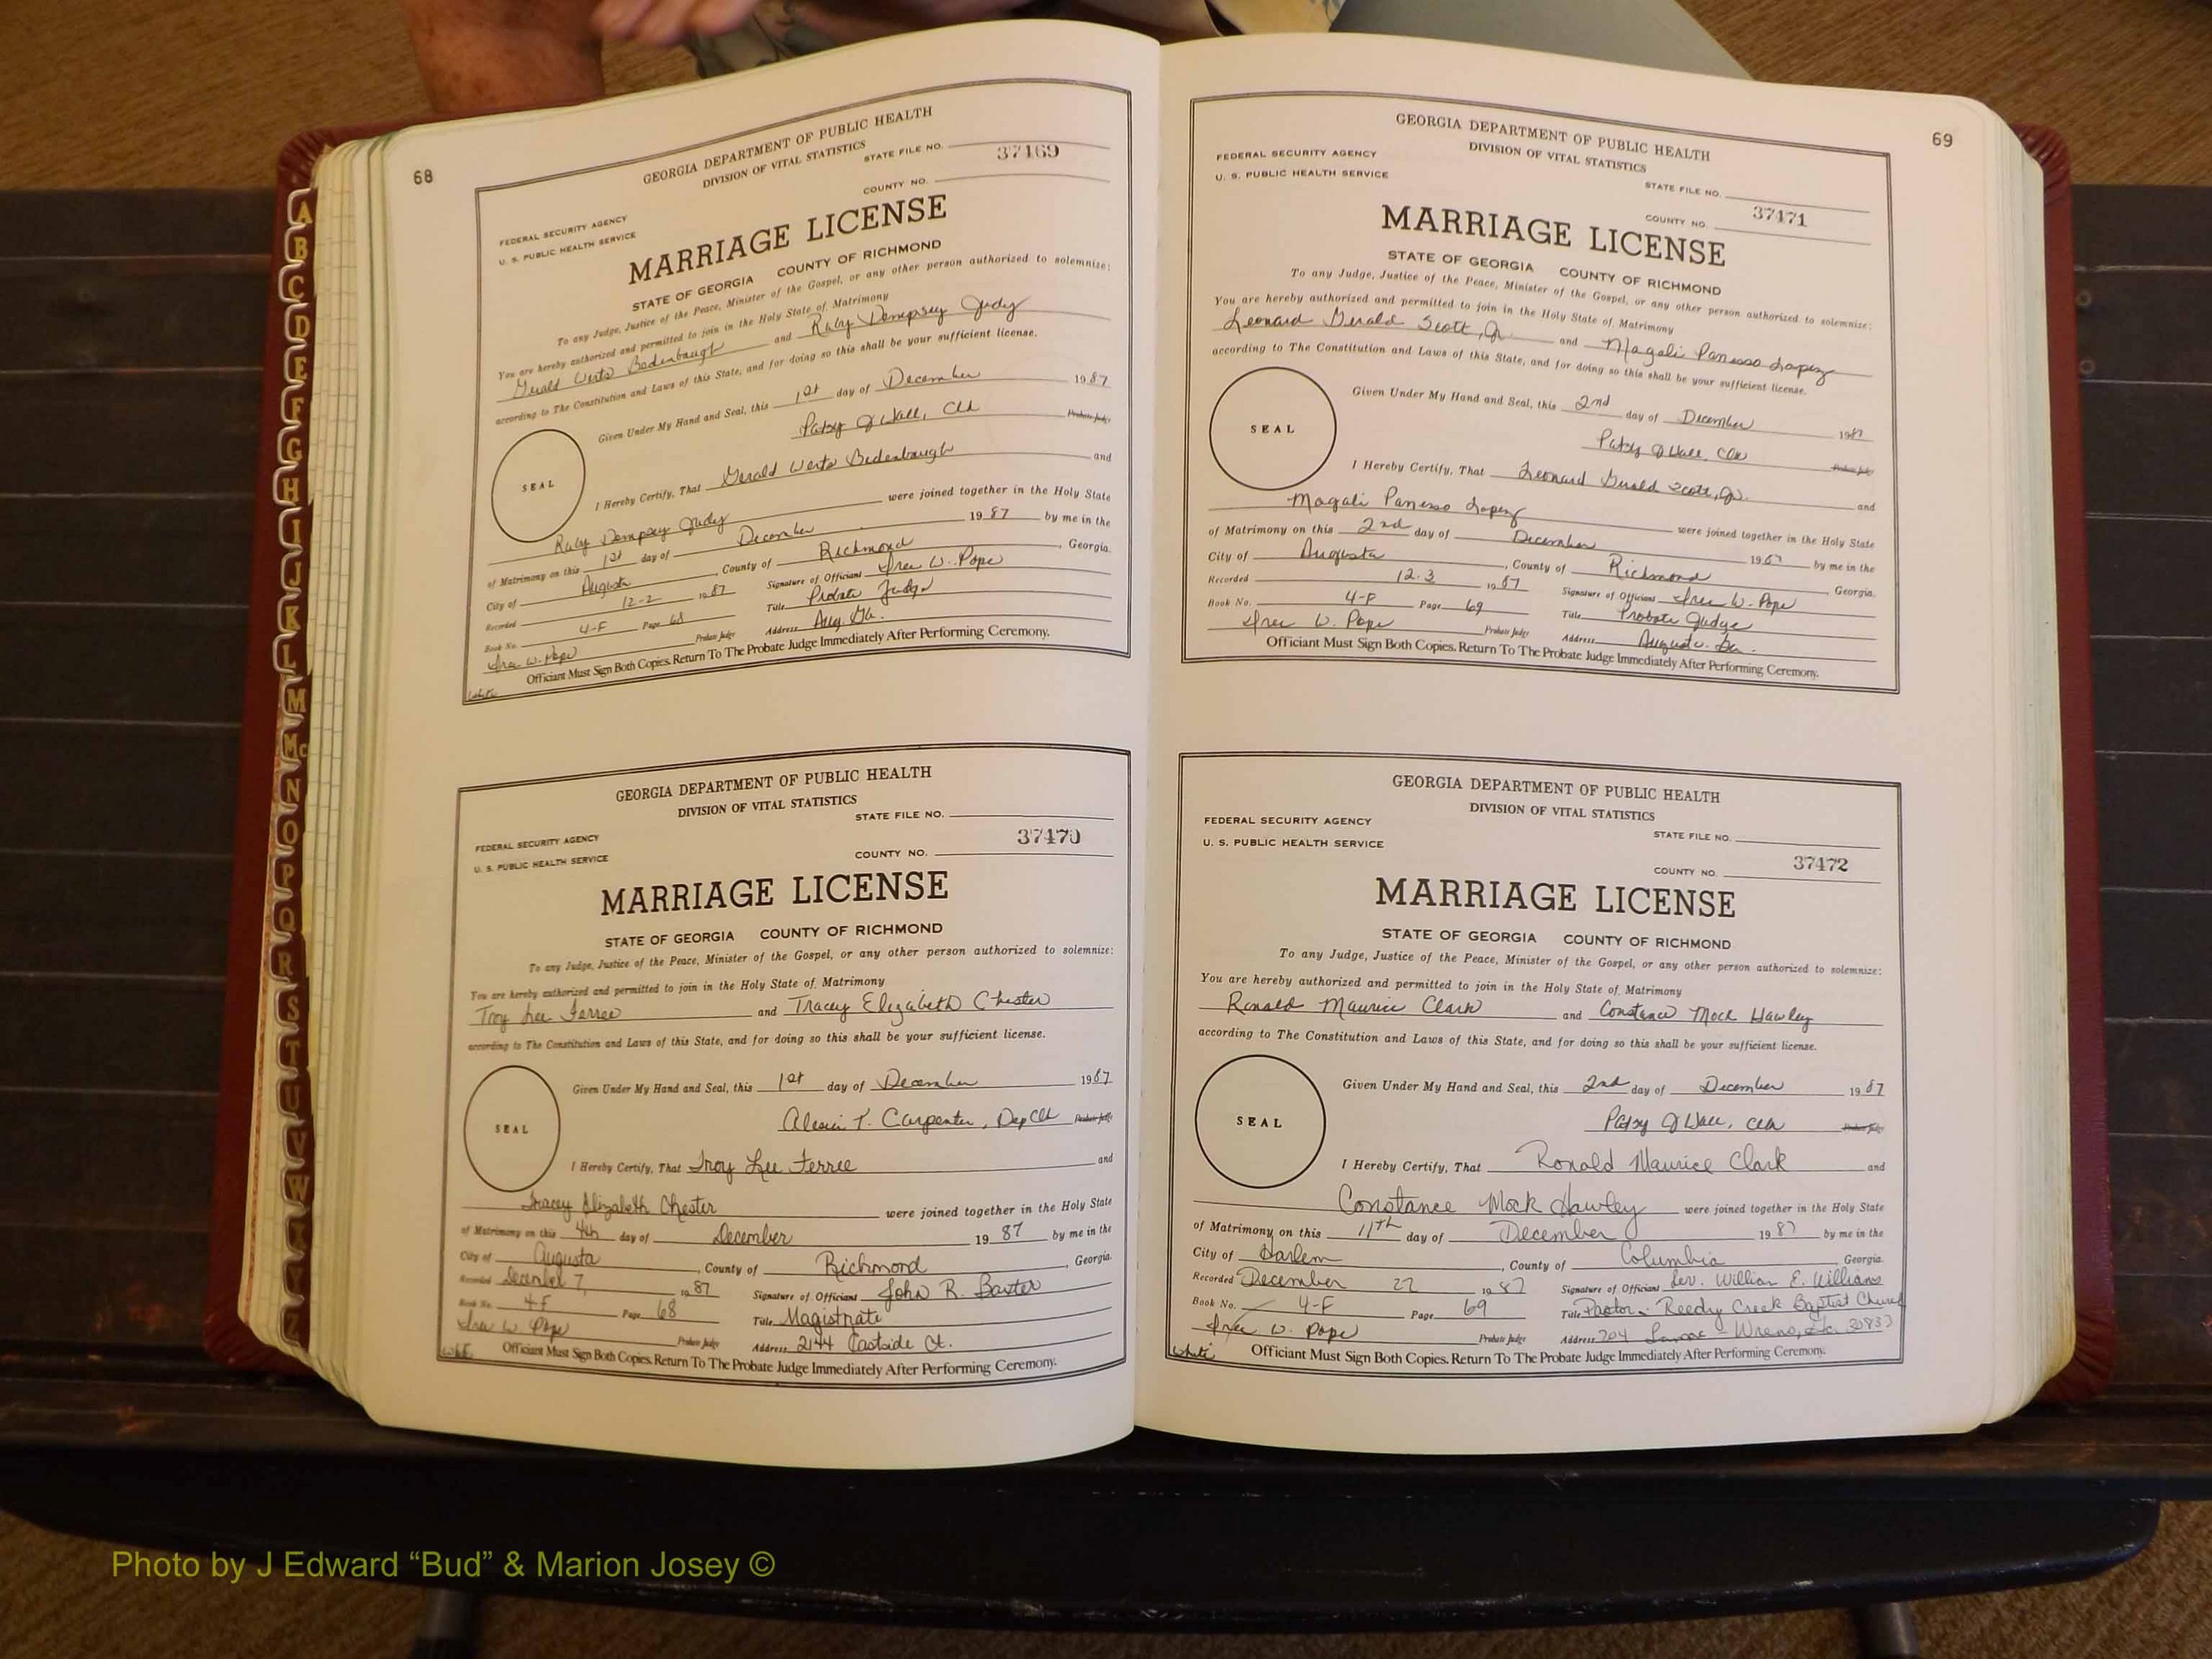 68
GEORGIA DEPARTMENT OF PUBLIC HEALTH
DIVISION OF VITAL STATISTICS
STATE FILE NO.
37469
FEDERAL SECURITY AGENCY
U. S. PUBLIC HEALTH SERVICE
COUNTY NO.
MARRIAGE LICENSE
STATE OF GEORGIA COUNTY OF RICHMOND
To any Judge, Justice of the Peace, Minister of the Gospel, or any other person authorized to solemnize:
You are hereby authorized and permitted to join in the Holy State of Matrimony
Gerald Werts Bedenbaugh and Ruby Dempsey Judy
according to The Constitution and Laws of this State, and for doing so this shall be your sufficient license.
Given Under My Hand and Seal, this 1st day of December 1987
Patsy J Wall, Clk Probate Judge
SEAL
I Hereby Certify, That Gerald Werts Bedenbaugh and
Ruby Dempsey Judy were joined together in the Holy State
of Matrimony on this 1st day of December 1987 by me in the
City of Augusta, County of Richmond, Georgia.
Recorded 12-2 1987 Signature of Officiant W. Pope
Book No. 4-F Page 68 Title Probate Judge
W. Pope Probate Judge Address Aug. Ga.
Officiant Must Sign Both Copies. Return To The Probate Judge Immediately After Performing Ceremony.
white
GEORGIA DEPARTMENT OF PUBLIC HEALTH
DIVISION OF VITAL STATISTICS
STATE FILE NO.
37470
FEDERAL SECURITY AGENCY
U. S. PUBLIC HEALTH SERVICE
COUNTY NO.
MARRIAGE LICENSE
STATE OF GEORGIA COUNTY OF RICHMOND
To any Judge, Justice of the Peace, Minister of the Gospel, or any other person authorized to solemnize:
You are hereby authorized and permitted to join in the Holy State of Matrimony
Troy Lee Ferree and Tracey Elizabeth Chester
according to The Constitution and Laws of this State, and for doing so this shall be your sufficient license.
Given Under My Hand and Seal, this 1st day of December 1987
T. Carpenter, Dep Clk Probate Judge
SEAL
I Hereby Certify, That Troy Lee Ferree and
Tracey Elizabeth Chester were joined together in the Holy State
of Matrimony on this 4th day of December 1987 by me in the
City of Augusta, County of Richmond, Georgia.
Recorded December 7, 1987 Signature of Officiant John R. Baxter
Book No. 4-F Page 68 Title Magistrate
W Pope Probate Judge Address 2144 Eastside Ct.
white Officiant Must Sign Both Copies. Return To The Probate Judge Immediately After Performing Ceremony.
69
GEORGIA DEPARTMENT OF PUBLIC HEALTH
DIVISION OF VITAL STATISTICS
FEDERAL SECURITY AGENCY
U. S. PUBLIC HEALTH SERVICE
STATE FILE NO.
37471
COUNTY NO.
MARRIAGE LICENSE
STATE OF GEORGIA COUNTY OF RICHMOND
To any Judge, Justice of the Peace, Minister of the Gospel, or any other person authorized to solemnize:
You are hereby authorized and permitted to join in the Holy State of Matrimony
Leonard Gerald Scott, Jr. and Magali Panesso Lopez
according to The Constitution and Laws of this State, and for doing so this shall be your sufficient license.
Given Under My Hand and Seal, this 2nd day of December 1987
Patsy J Wall, Clk Probate Judge
SEAL
I Hereby Certify, That Leonard Gerald Scott, Jr. and
Magali Panesso Lopez were joined together in the Holy State
of Matrimony on this 2nd day of December 1987 by me in the
City of Augusta, County of Richmond, Georgia.
Recorded 12-3 1987 Signature of Officiant W. Pope
Book No. 4-F Page 69 Title Probate Judge
W. Pope Probate Judge Address Augusta, Ga.
Officiant Must Sign Both Copies. Return To The Probate Judge Immediately After Performing Ceremony.
GEORGIA DEPARTMENT OF PUBLIC HEALTH
DIVISION OF VITAL STATISTICS
FEDERAL SECURITY AGENCY
U. S. PUBLIC HEALTH SERVICE
STATE FILE NO.
37472
COUNTY NO.
MARRIAGE LICENSE
STATE OF GEORGIA COUNTY OF RICHMOND
To any Judge, Justice of the Peace, Minister of the Gospel, or any other person authorized to solemnize:
You are hereby authorized and permitted to join in the Holy State of Matrimony
Ronald Maurice Clark and Constance Mock Hawley
according to The Constitution and Laws of this State, and for doing so this shall be your sufficient license.
Given Under My Hand and Seal, this 2nd day of December 1987
Patsy J Wall, Clk Probate Judge
SEAL
I Hereby Certify, That Ronald Maurice Clark and
Constance Mock Hawley were joined together in the Holy State
of Matrimony on this 11TH day of December 1987 by me in the
City of Harlem, County of Columbia Georgia.
Recorded December 22 1987 Signature of Officiant Rev. William E. Williams
Book No. 4-F Page 69 Title Pastor - Reedy Creek Baptist Church
W. Pope Probate Judge Address 204 - Wrens, Ga. 30833
white Officiant Must Sign Both Copies. Return To The Probate Judge Immediately After Performing Ceremony.
A
B
C
D
E
F
G
H
I
J
K
L
M
Mc
N
O
P
Q
R
S
T
U
V
W
X
Y
Z
Photo by J Edward “Bud” & Marion Josey ©